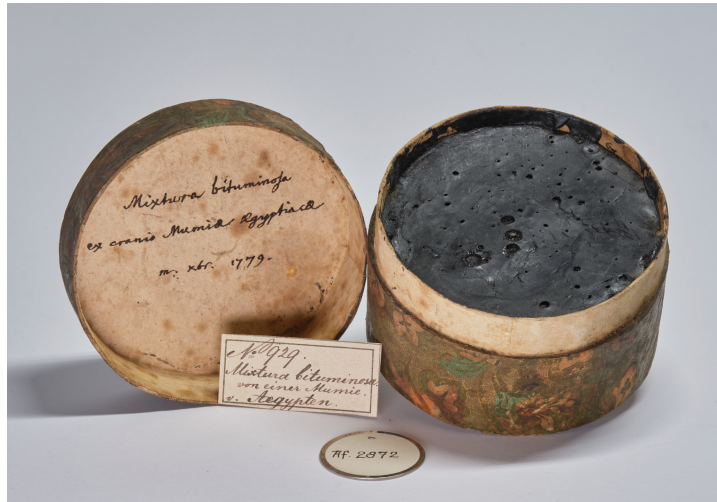 Mixtura bituminosa
ex cranio Mumiæ Ægyptiacæ
m. xbr. 1779.
No. 929.
Mixtura bituminosa
von einer Mumie.
v. Aegypten.
Af. 2872